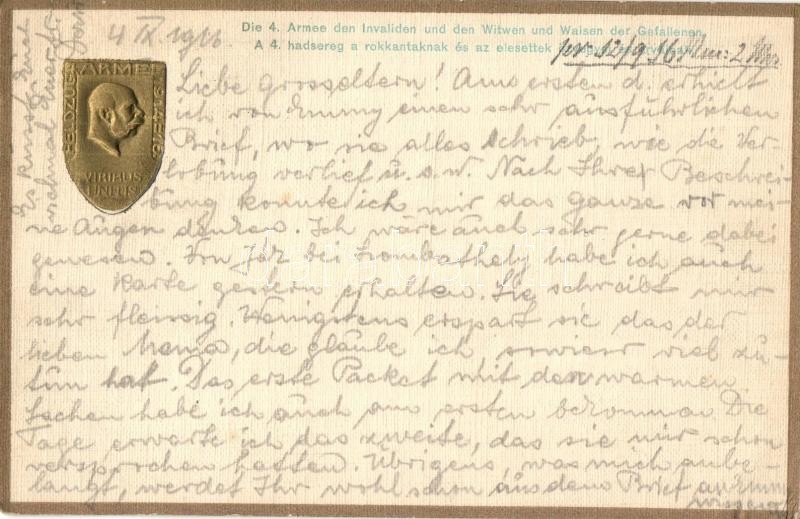 Die 4. Armee den Invaliden und den Witwen und Waisen der Gefallenen.
A 4. hadsereg a rokkantaknak és az elesettek
4 IX 1916
FELDZUG ARMEE 1914-16
VIRIBUS
UNITIS
Liebe Grosseltern! Am ersten d. erhielt
ich von Emmy einen sehr ausführlichen
Brief, wo sie alles schrieb, wie die Ver-
lobung verlief u. s. w. Nach Ihrer Beschrei-
bung konnte ich mir das ganze vor mei-
ne Augen denken. Ich wäre auch sehr gerne dabei
gewesen. Von bei Szombathely habe ich auch
eine Karte gestern erhalten. Sie schreibt mir
sehr fleissig. Wenigstens erspart sie das der
lieben Mama, die glaube ich sowieso viel zu-
tun hat. Das erste Packet mit den warmen
Sachen habe ich auch am ersten bekommen. Die
Tage erwarte ich das zweite, das sie mir schon
versprochen hatten. Übrigens, was mich anbe-
langt, werdet Ihr wohl schon aus dem Brief an Emmy
Es küsst Euch
vielmal Euer